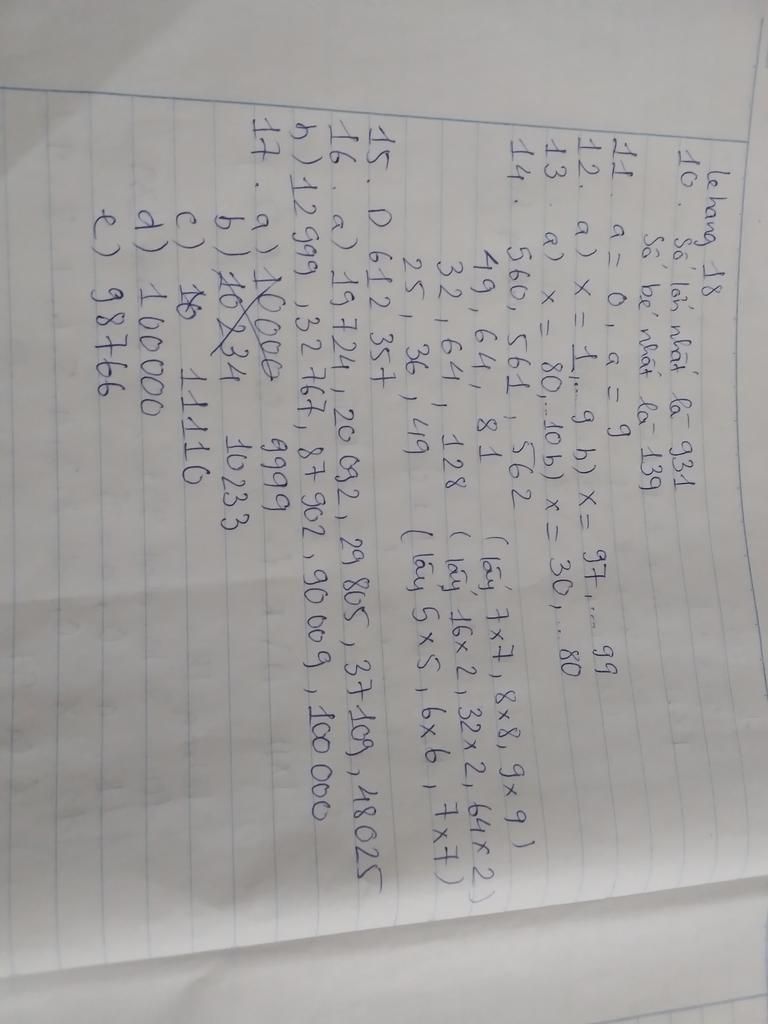 lẻ hàng 18
10. Số lớn nhất là 931
Số bé nhất là 139
11. a = 0, a = 9
12. a) x = 1,... 9 b) x = 97,... 99
13. a) x = 80,...10 b) x = 30,... 80
14. 560, 561, 562
49, 64, 81 (lấy 7x7, 8x8, 9x9)
32, 64, 128 (lấy 16x2, 32x2, 64x2)
25, 36, 49 (lấy 5x5, 6x6, 7x7)
15. D 612 357
16. a) 19 724, 20 092, 29 805, 37 109, 48 025
b) 12 999, 32 767, 87 902, 90 009, 100 000
17. a) 10000 9999
b) 10234 10233
c) 11110
d) 100000
e) 98766